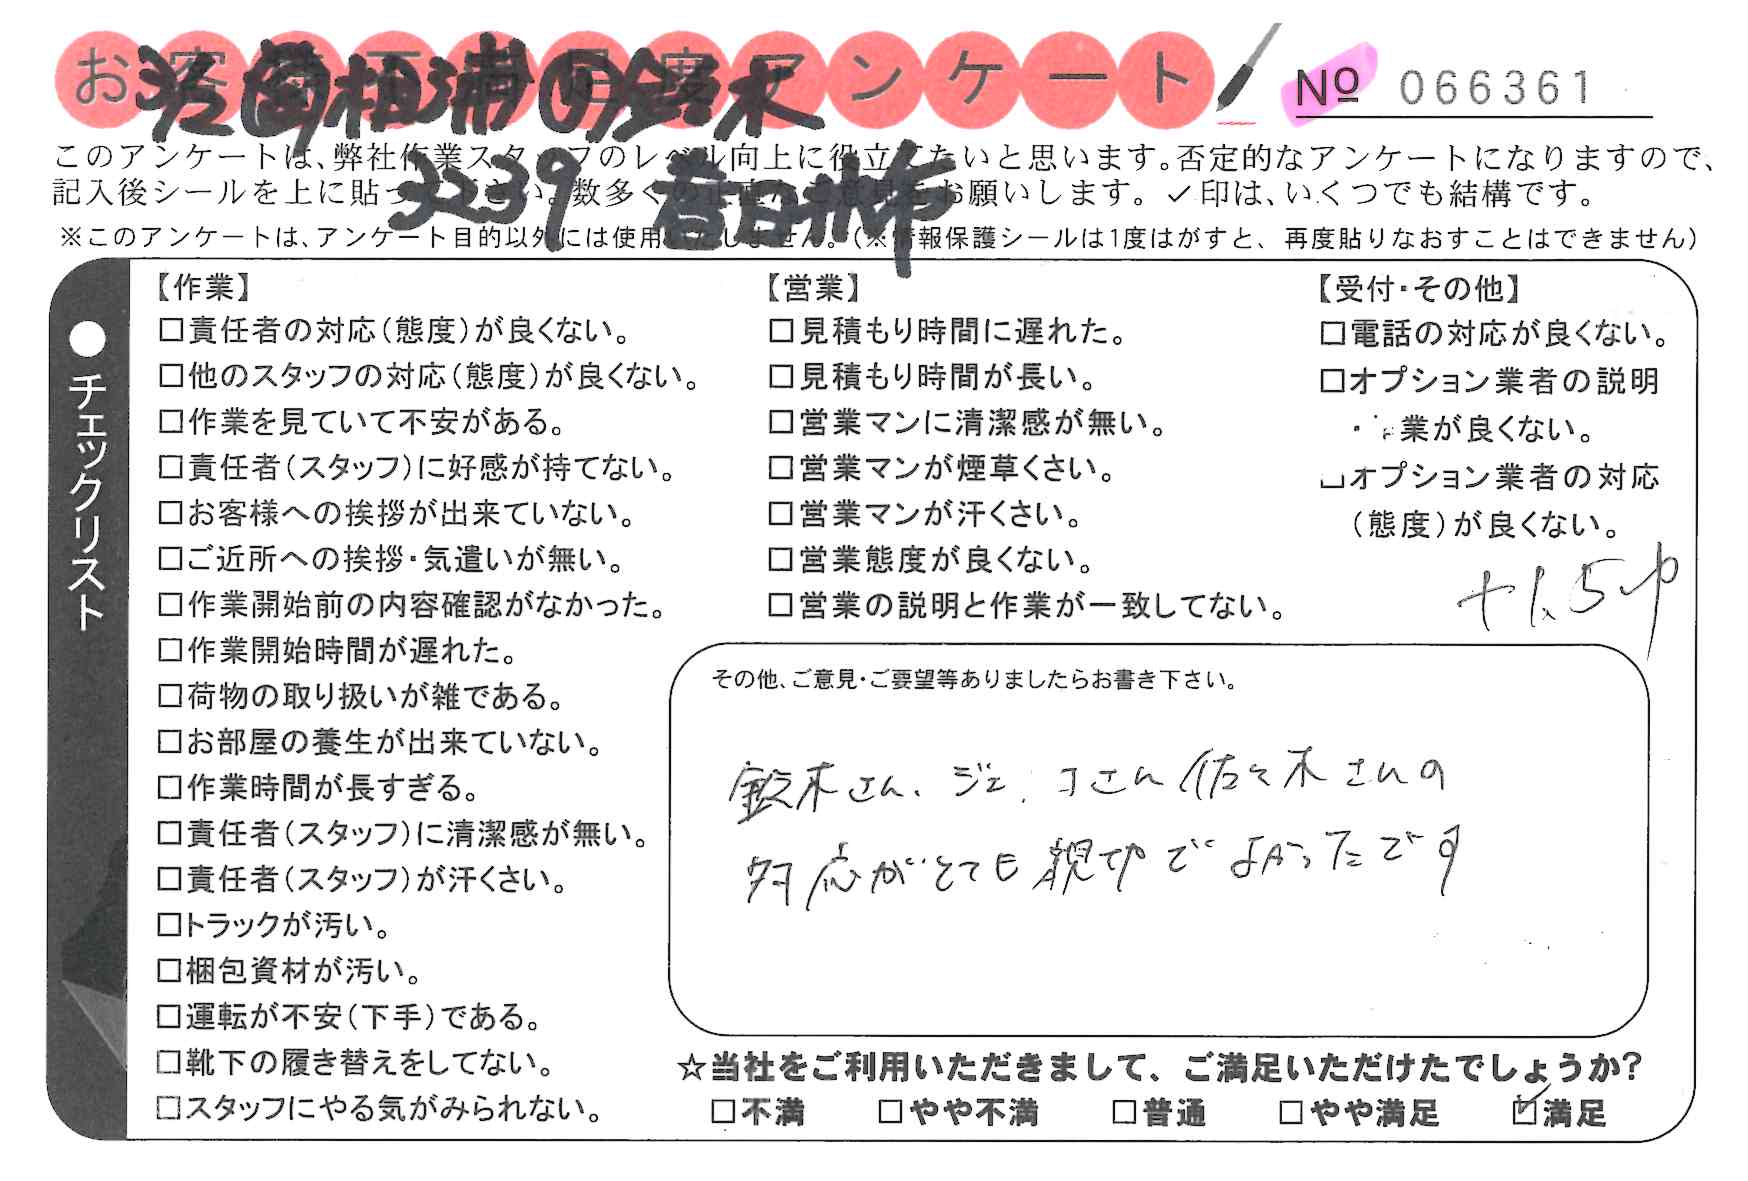 お客様不満足度アンケート
No 066361
3239 春日井市
このアンケートは、弊社作業スタッフのレベル向上に役立てたいと思います。否定的なアンケートになりますので、
記入後シールを上に貼って下さい。数多くの正直なご意見をお願いします。✓印は、いくつでも結構です。
※このアンケートは、アンケート目的以外には使用いたしません。(※情報保護シールは1度はがすと、再度貼りなおすことはできません)
●チェックリスト
【作業】
□責任者の対応(態度)が良くない。
□他のスタッフの対応(態度)が良くない。
□作業を見ていて不安がある。
□責任者(スタッフ)に好感が持てない。
□お客様への挨拶が出来ていない。
□ご近所への挨拶・気遣いが無い。
□作業開始前の内容確認がなかった。
□作業開始時間が遅れた。
□荷物の取り扱いが雑である。
□お部屋の養生が出来ていない。
□作業時間が長すぎる。
□責任者(スタッフ)に清潔感が無い。
□責任者(スタッフ)が汗くさい。
□トラックが汚い。
□梱包資材が汚い。
□運転が不安(下手)である。
□靴下の履き替えをしてない。
□スタッフにやる気がみられない。
【営業】
□見積もり時間に遅れた。
□見積もり時間が長い。
□営業マンに清潔感が無い。
□営業マンが煙草くさい。
□営業マンが汗くさい。
□営業態度が良くない。
□営業の説明と作業が一致してない。
【受付・その他】
□電話の対応が良くない。
□オプション業者の説明
業が良くない。
□オプション業者の対応
(態度)が良くない。
+1.5p
その他、ご意見・ご要望等ありましたらお書き下さい。
鈴木さん、ジェ コさん佐々木さんの
対応がとても親切でよかったです
☆当社をご利用いただきまして、ご満足いただけたでしょうか?
□不満 □やや不満 □普通 □やや満足 ☑満足